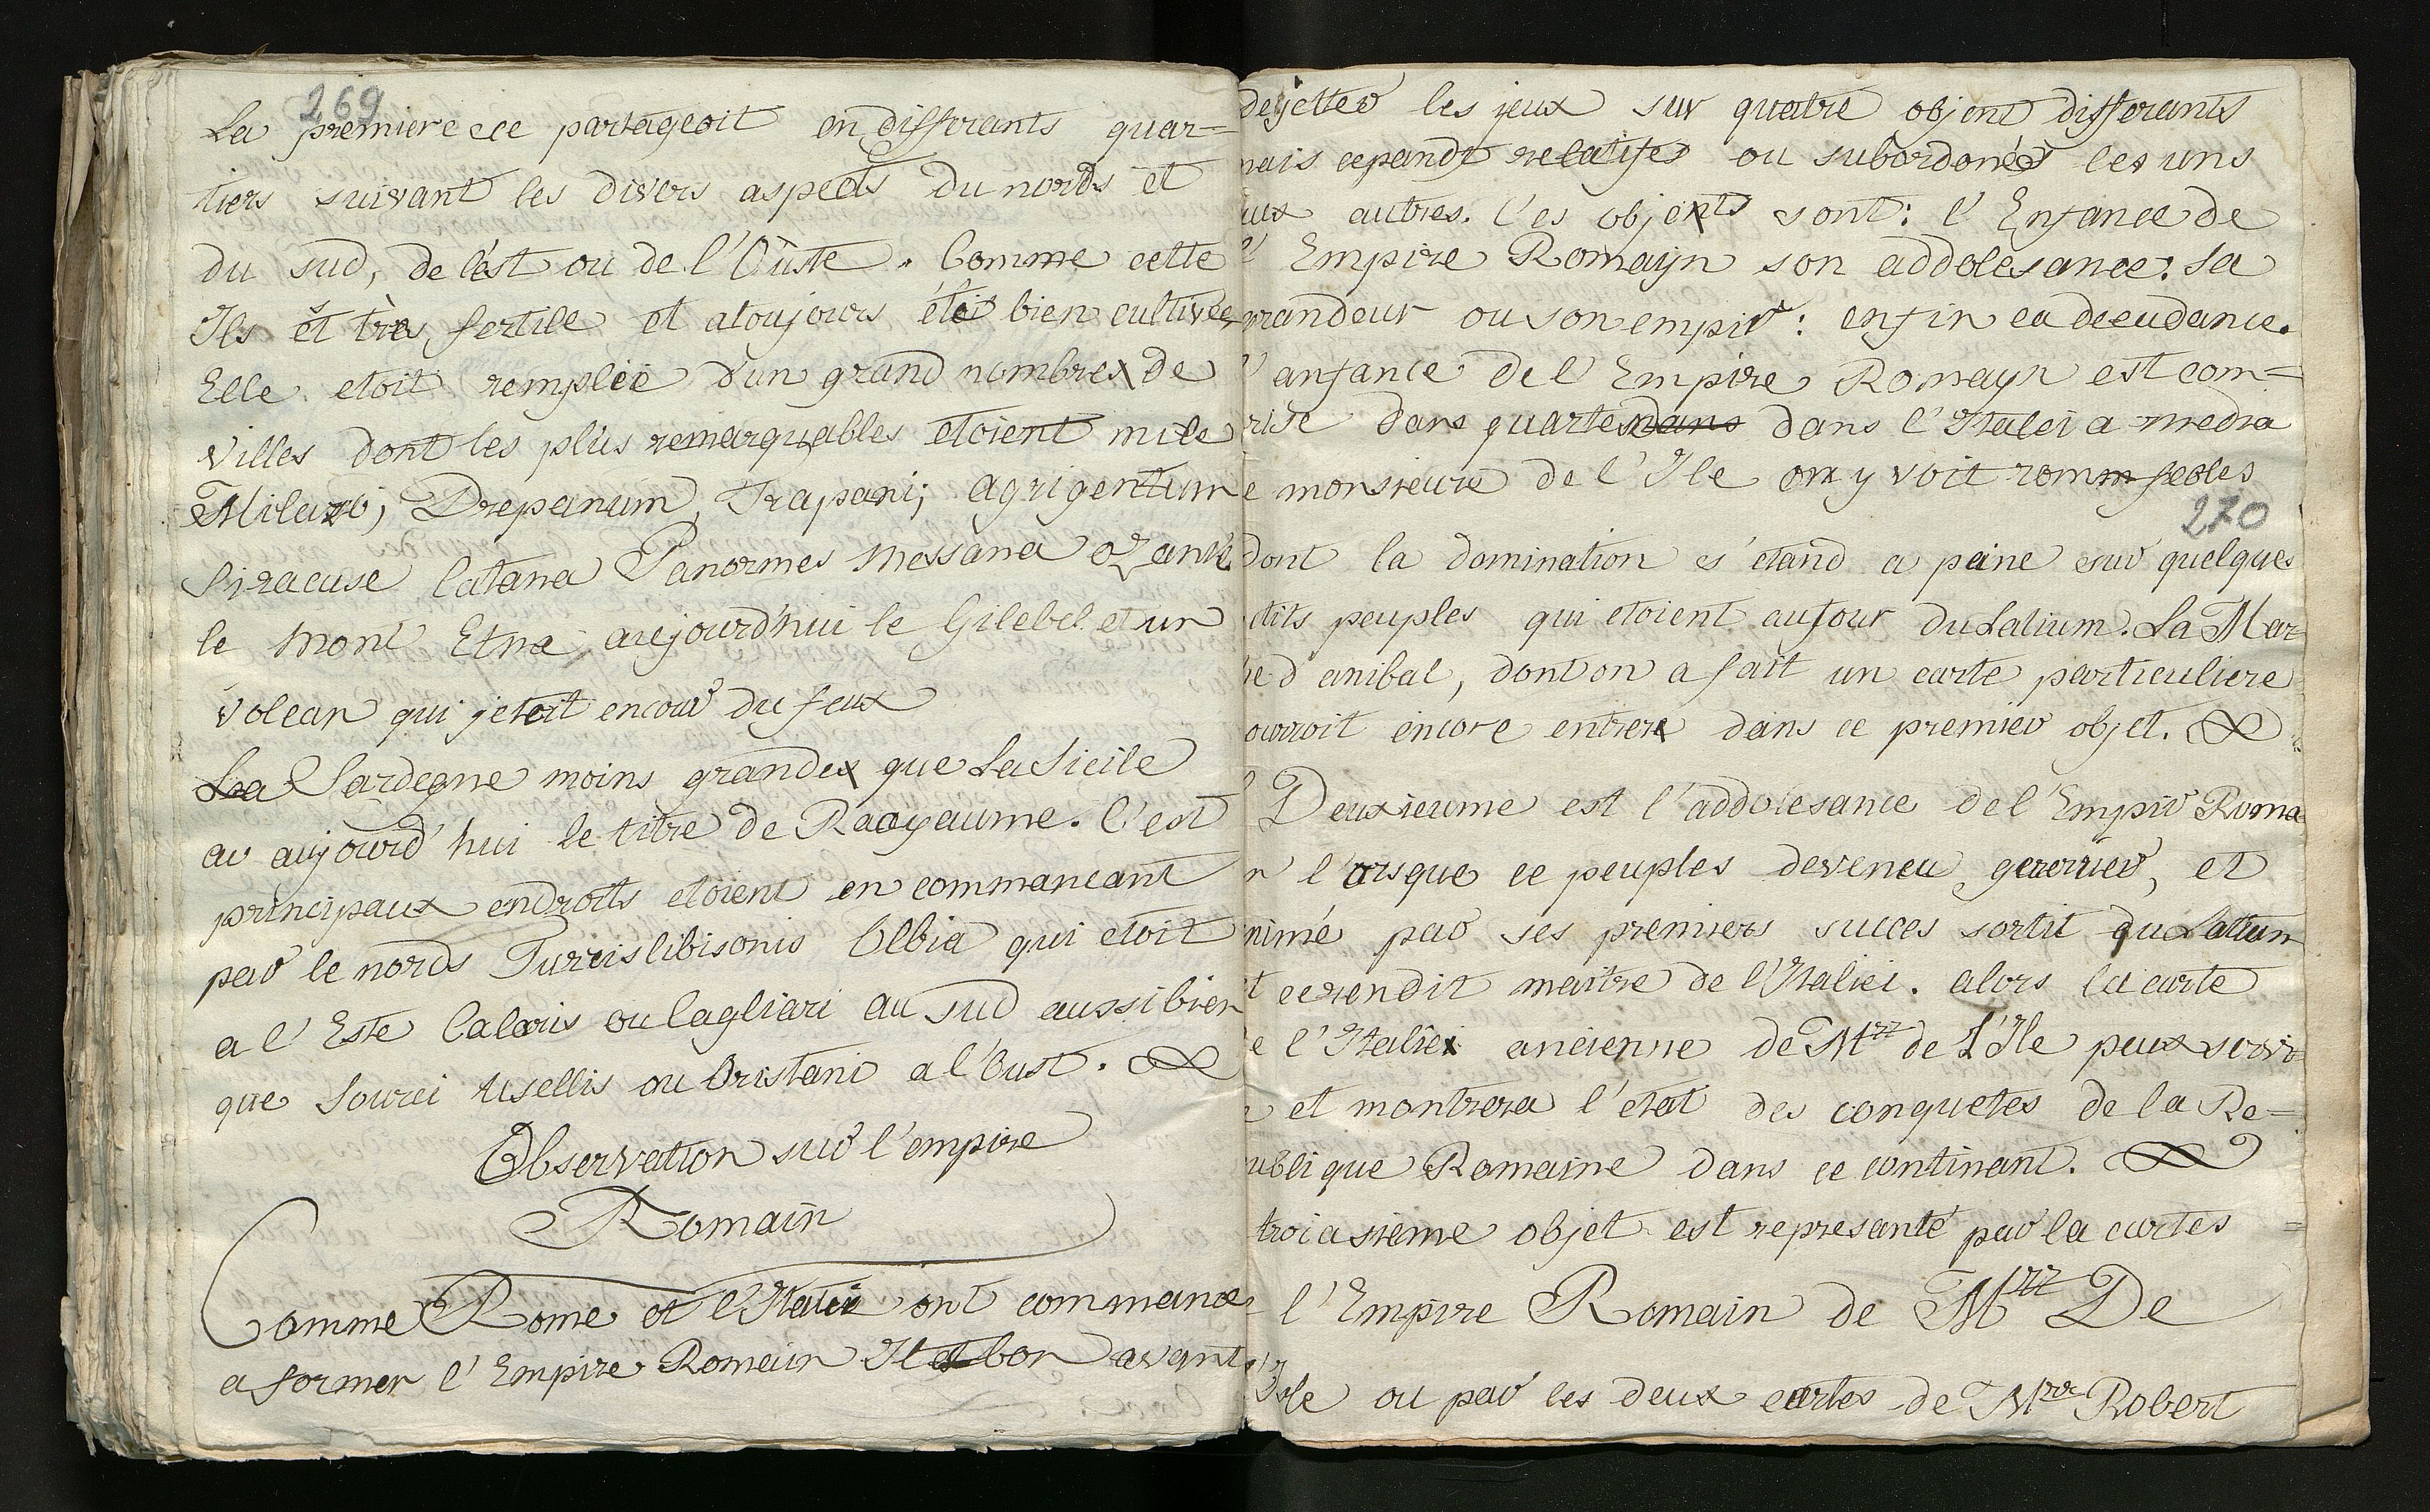 269
La premiere ce partageoit en differants quar=
tiers suivant les divers aspects du nords et
du sud, de l'est ou de l'Oüste. Comme cette
Ils est très fertile et atoujours étoi bien cultivée
Elle etoit remplie d'un grand nombre de
villes dont les plus remarquables etoient mile
Milazo, Drepanum, Trapani; agrigentum
Siracuse Catana Panormes Messana
le Mont Etna aujourd'hui le Gilebel et un
volcan qui jetoit encour du feux
La Sardegne moins grande que La Sicile
av aujourd'hui le titre de Raoyaume. C'est
principaux endroits etoient en commancant
par le nords Turrislibisonis Olbia qui etoit
a l'Este Calaris ou Cagliari au sud aussi bien
que Sourci Usellis ou Oristani a l'Oust.
Observation sur l'empire
Romain
Comme Rome et l'Italie ont commance
a former l'Empire Romain Il est bon avant
dejetter les yeux sur quatre objent differants
mais cepandt relatifes ou subordonés les uns
aux autres. Ces objents sont: l'Enfance de
l'Empire Romayn son addolesance: sa
grandeur ou son empir: enfin ca decudance.
l'anfance de l'Empire Romayn est com=
rise dans quartes dans dans l'Italei a media
e monsieure de l'Ile on y voit rom feoles
270
dont la domination s'etand a peine sur quelques
etits peuples qui etoient autour du Latium. La Mar
he d'anibal, dont on a fait un carte particuliere
ourroit encore entrer dans ce premier objet.
Deuxieume est l'addolesance de l'Empir Roma
n l'orsque ce peuples deveneu guerrier, et
nimé par ses premiers succes sortit du Latium
et ce rendit maitre de l'Italiei. alors la carte
e l'Italie ancienne de Mrr de L'Ile peux servir
et montrera l'etat des conquetes de la Re=
ublique Romaine dans ce continant.
troiasieme objet est represanté par la cartes
l'Empire Romain de Mrr De
Isle ou par les deux cartes de Mrr Robert